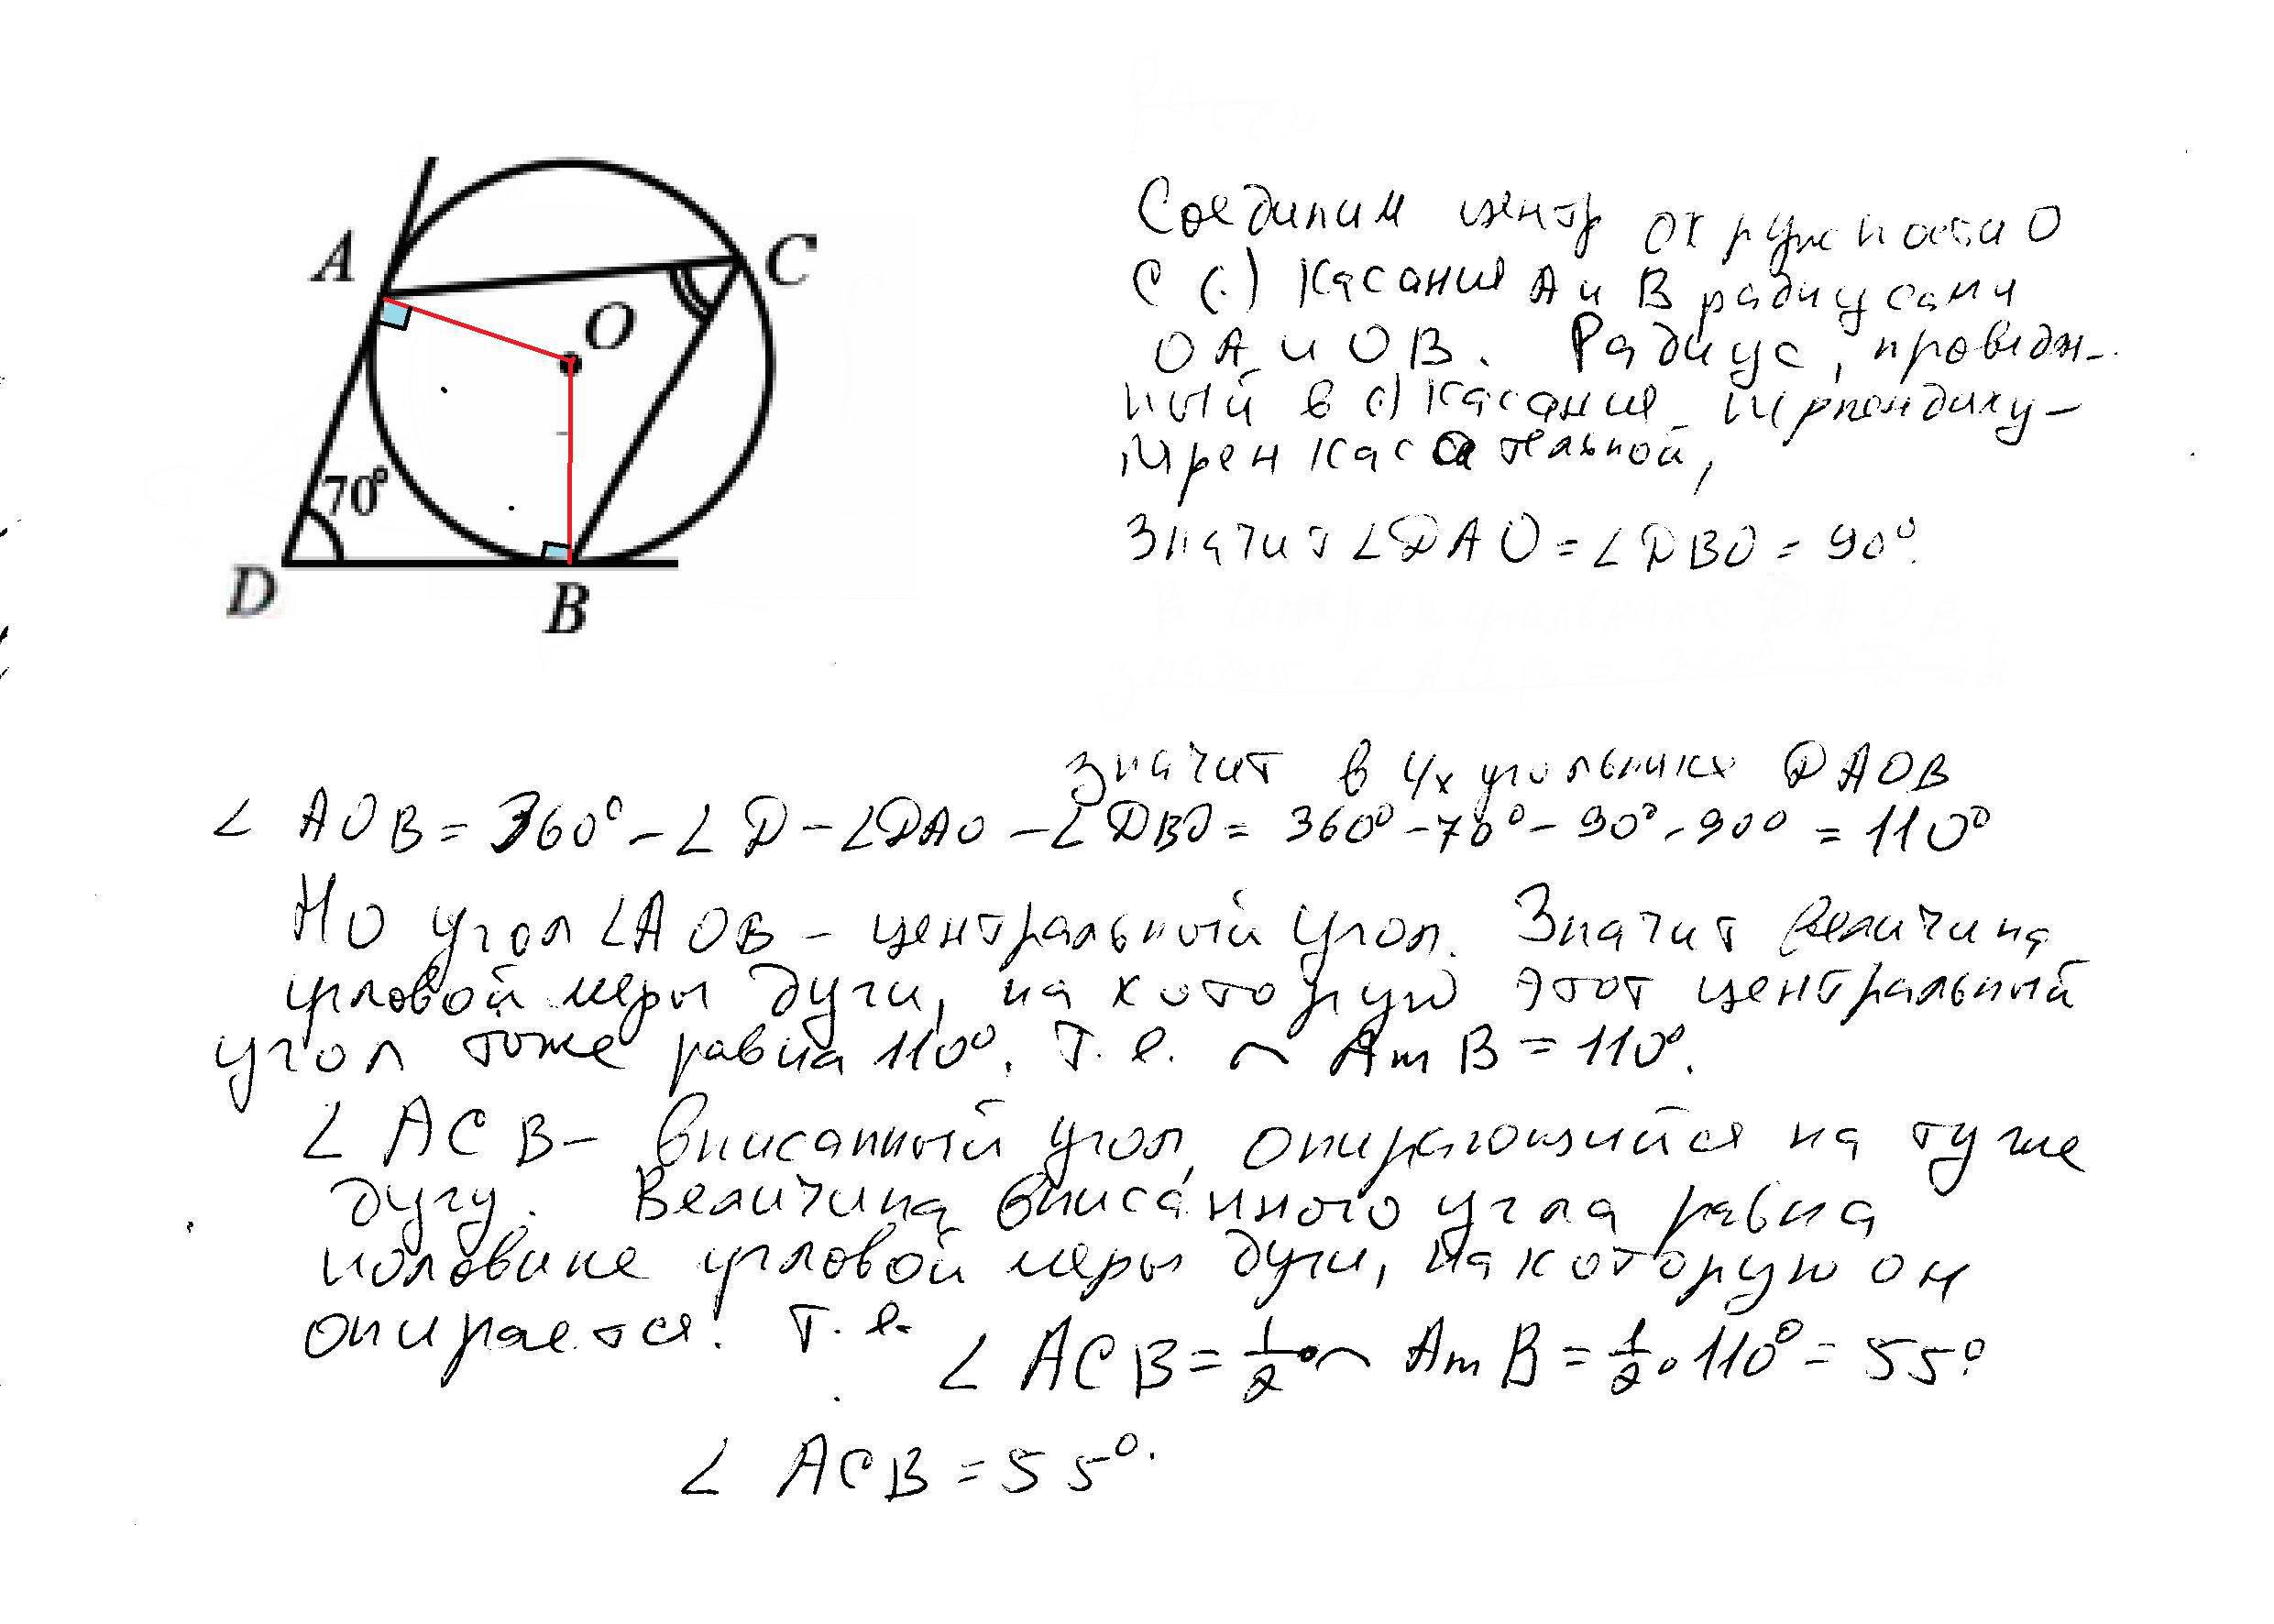 A
C
O
70°
D
B
Соединим центр окружности О
с (.) касания А и В радиусами
ОА и ОВ. Радиус, проведен-
ный в (.) касания перпендику-
лярен касательной,
Значит ∠DAO = ∠DBO = 90°.
значит в 4х угольнике DAOB
∠AOB = 360° - ∠D - ∠DAO - ∠DBO = 360° - 70° - 90° - 90° = 110°
Но угол ∠AOB – центральный угол. Значит величина
угловой меры дуги, на которую этот центральный
угол тоже равна 110°. Т.е. ◠ AmB = 110°.
∠ACB – вписанный угол, опирающийся на ту же
дугу. Величина вписанного угла равна
половине угловой меры дуги, на которую он
опирается. Т.е. ∠ACB = 1/2 · ◠ AmB = 1/2 · 110° = 55°
∠ACB = 55°.